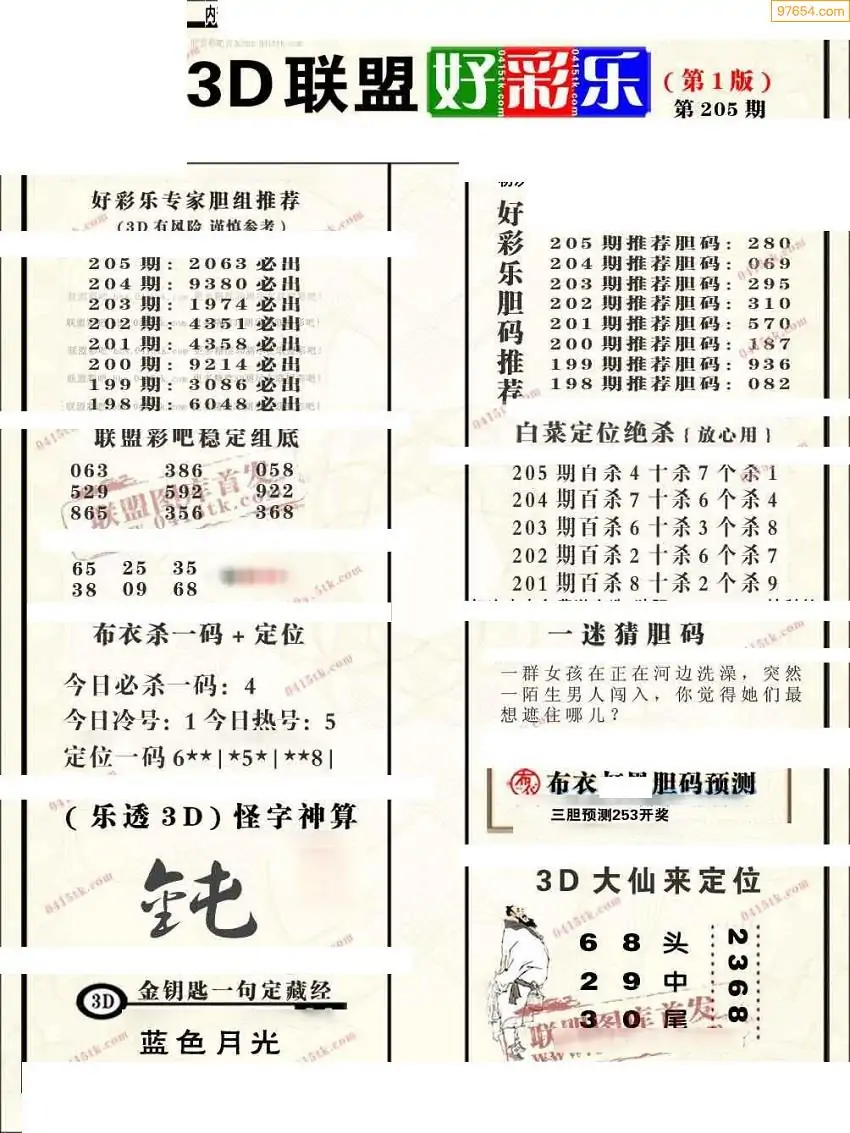 97654.com
3D联盟好彩乐(第1版)
第205期
好彩乐专家胆组推荐
(3D有风险 谨慎参考)
205期:2063必出
204期:9380必出
203期:1974必出
202期:4351必出
201期:4358必出
200期:9214必出
199期:3086必出
198期:6048必出
联盟彩吧稳定组底
063 386 058
529 592 922
865 356 368
65 25 35
38 09 68
布衣杀一码+定位
今日必杀一码:4
今日冷号:1 今日热号:5
定位一码6**|*5*|**8|
(乐透3D)怪字神算
3D 金钥匙一句定藏经
蓝色月光
好彩乐胆码推荐
205期推荐胆码:280
204期推荐胆码:069
203期推荐胆码:295
202期推荐胆码:310
201期推荐胆码:570
200期推荐胆码:187
199期推荐胆码:936
198期推荐胆码:082
白菜定位绝杀{放心用}
205期百杀4十杀7个杀1
204期百杀7十杀6个杀4
203期百杀6十杀3个杀8
202期百杀2十杀6个杀7
201期百杀8十杀2个杀9
一迷猜胆码
一群女孩在正在河边洗澡，突然
一陌生男人闯入，你觉得她们最
想遮住哪儿？
布衣 胆码预测
三胆预测253开奖
3D大仙来定位
68头
29中
30尾
2368
联盟图库首发
0415tk.com